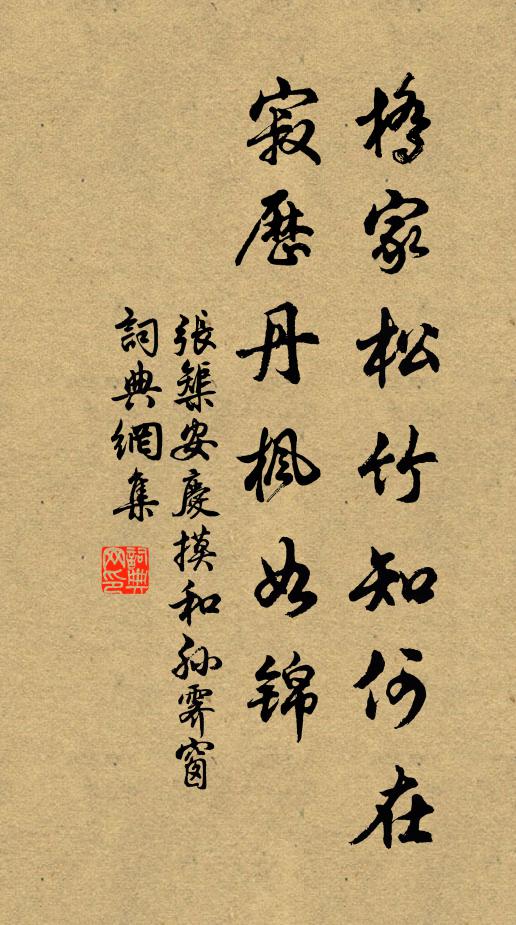 橋家松竹知何在
寂歷丹枫如锦
張榘安慶摸和孙霽窗
詞典網集
詞典网印